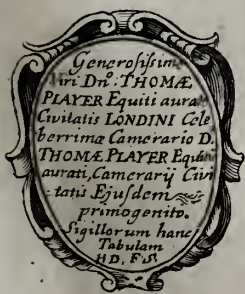 Generosissim
Viri Dn͞o: THOMÆ
PLAYER Equiti aura
Civitatis LONDINI Cele
berrimæ Camerario D.
THOMÆ PLAYER Equitis
aurati, Camerarij Civi
tatis Ejusdem
primogenito.
Sigillorum hanc
Tabulam
HD, F. S.